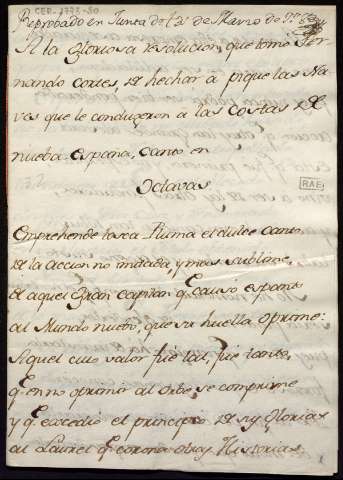 CER-1778-30
Reprobado en Junta de 12 de Marzo de
A la Gloriosa resolucion, que tomò Fer-
nando cortes, de hechar à pique las Na-
ves que le conduzeron a las costas de
nueba España, canto en
Octavas
RAE
Emprehende tosca Pluma el dulce canto
de la accion no imitada, y mas sublime,
de aquel Gran capitan q̃ causo espanto
al Mundo nuebo, que su huella oprime:
Aquel cuio valor fuè tal, fuè tanto,
q̃ en no oprimir al Orbe, se comprime,
y q̃ excediò el principio de sus glorias
al Laurel q̃ corona otras Historias